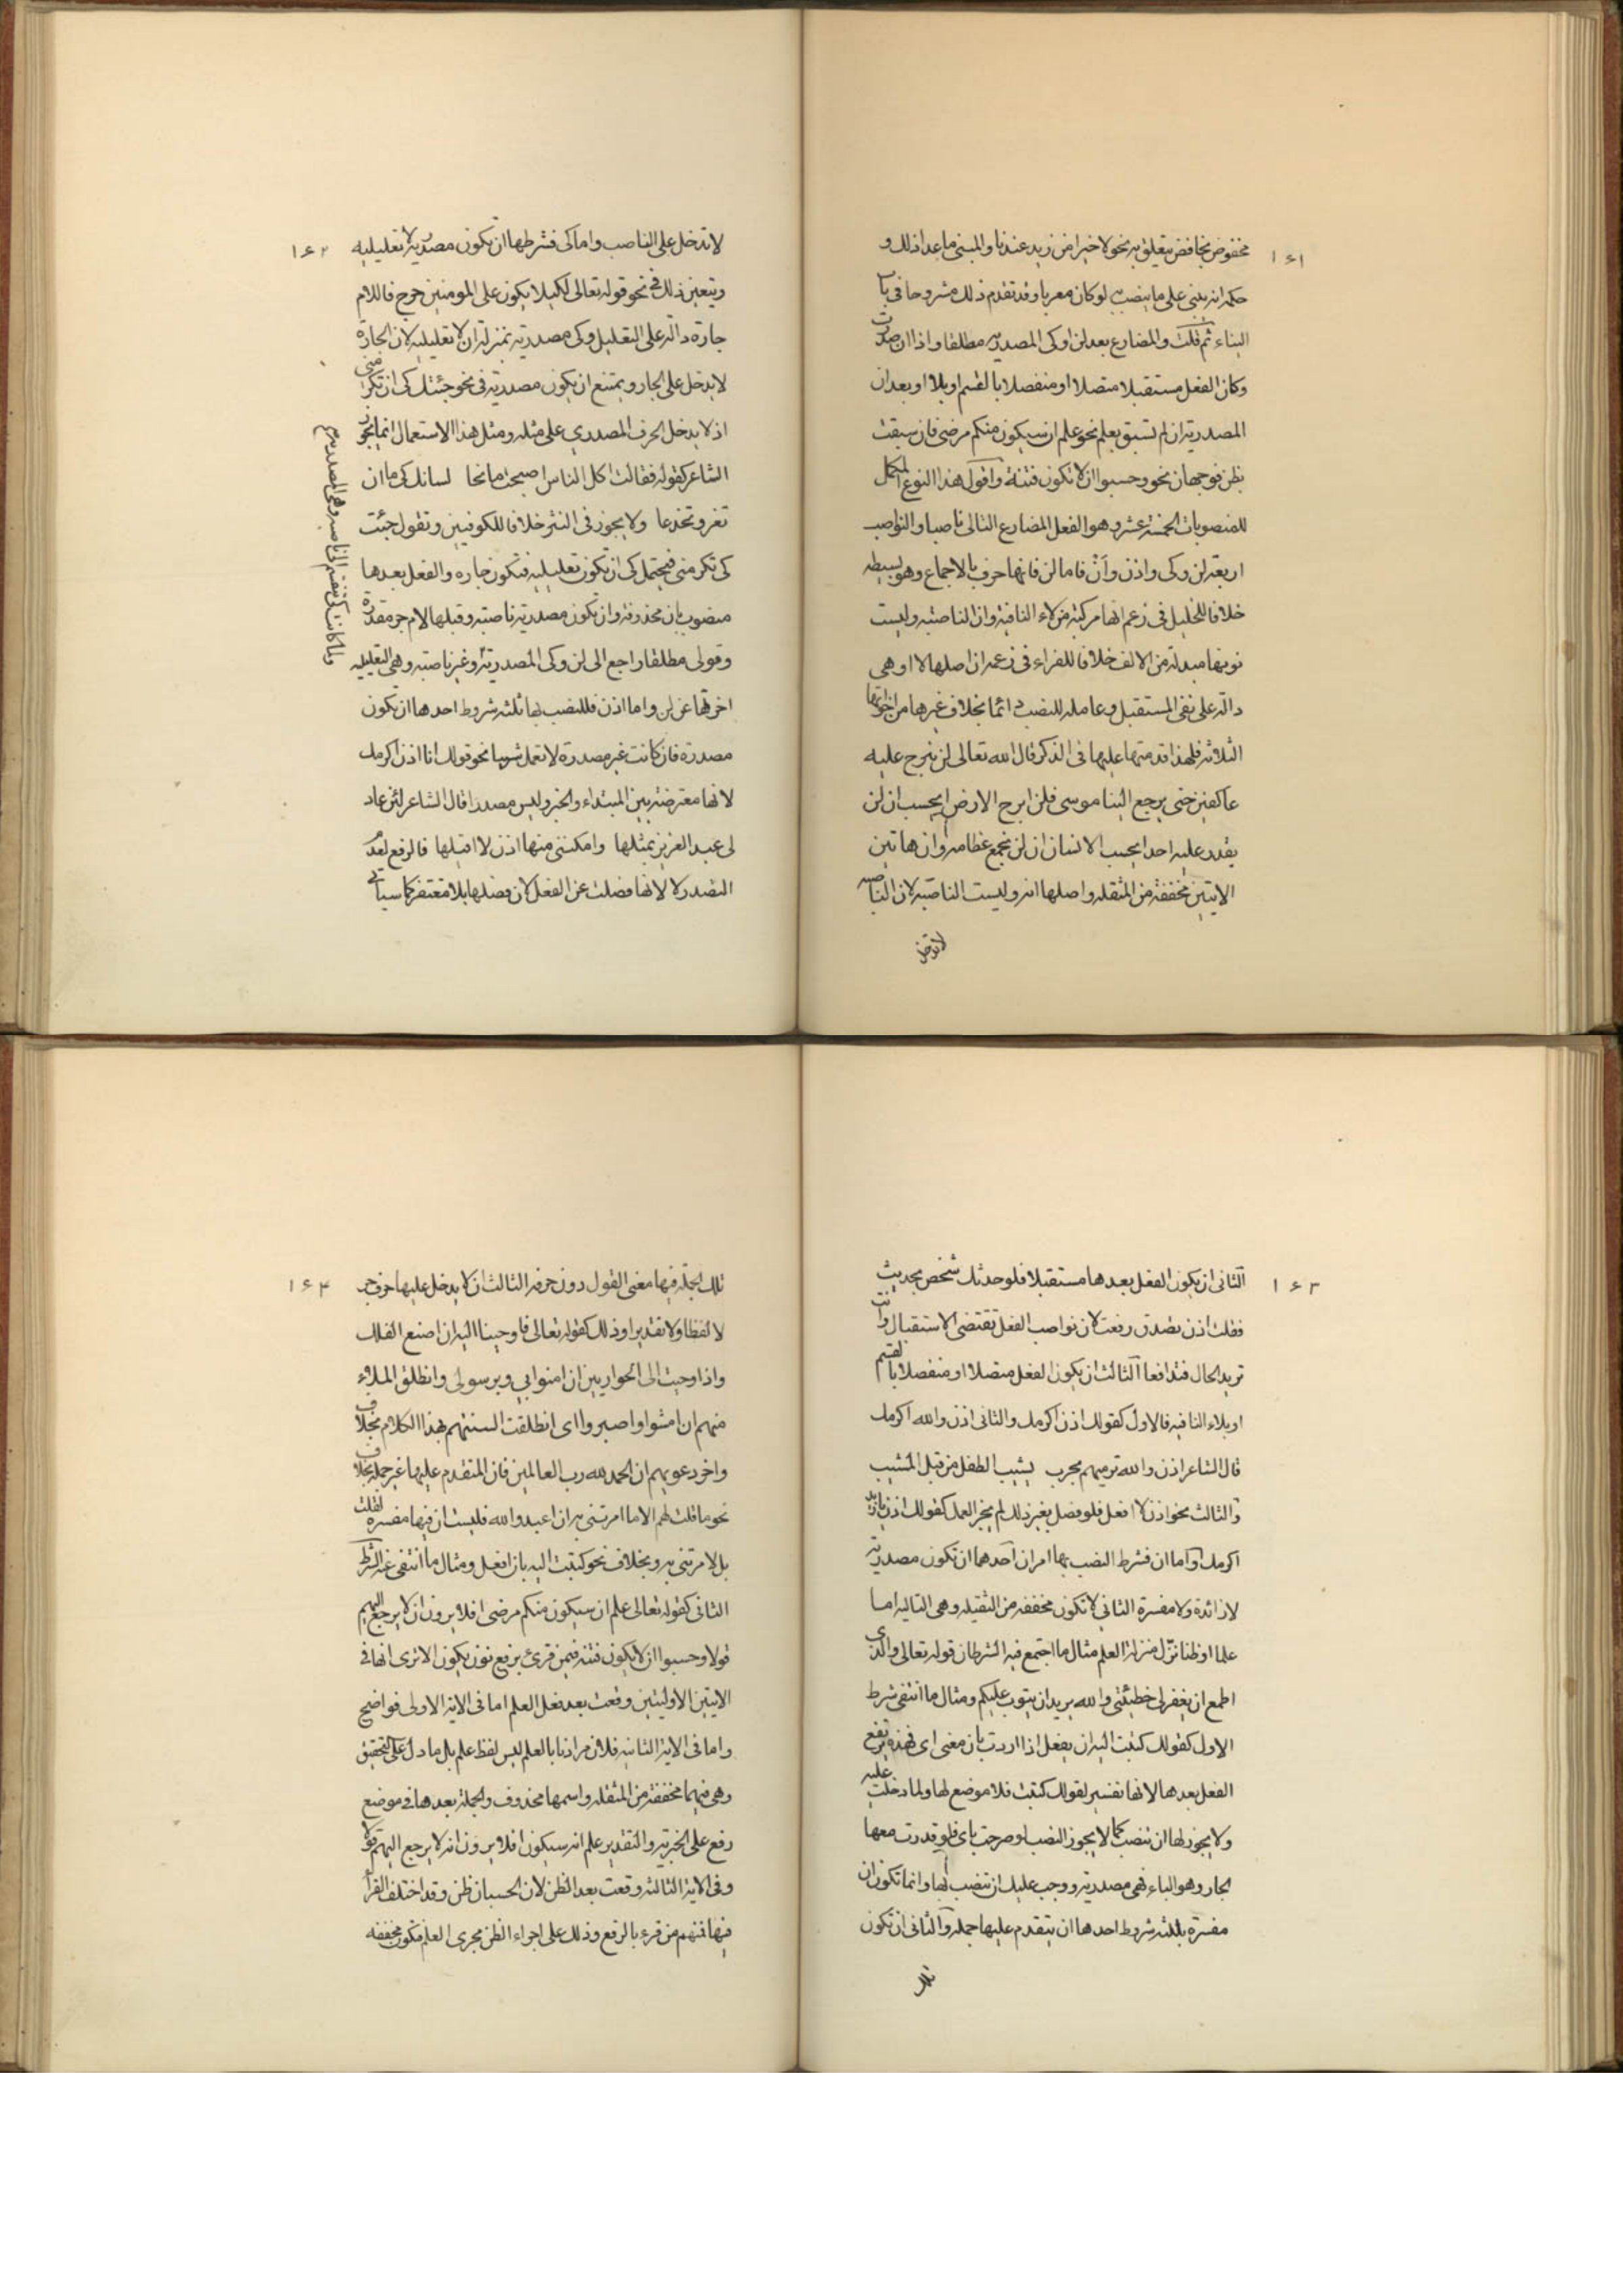 ١٦١
مخفوض بخافض متعلق به نحو لا خيرا من زيد عندنا والمبنى ما عدا ذلك و
حكمه انه يبنى على ما ينصب به لو كان معربا وقد تقدم ذلك مشروحا في باب
البناء ثم قلت والمضارع بعد لن او كى المصدريه مطلقا واذا ان صدرت
وكان الفعل مستقبلا متصلا او منفصلا بالقسم او بلا او بعد ان
المصدرية ان لم تسبق بعلم نحو علم ان سيكون منكم مرضى فان سبقت
بظن فوجهان نحو وحسبوا ان لا تكون فتنة واقول هذا النوع المكمل
للمنصوبات الخمسة عشر وهو الفعل المضارع التالى ناصبا والنواصب
اربعة لن وكى واذن وأن فاما لن فانها حرف بالاجماع وهو بسيطه
خلافا للخليل في زعمه انها مركبة من لاء النافية وان الناصبه وليست
نونها مبدلة من الالف خلافا للفراء في زعمه ان اصلها لا او هى
دالة على نفى المستقبل وعامله للنصب دائما بخلاف غيرها من اخواتها
الثلاثه فلهذا قدمتها عليها في الذكر قال الله تعالى لن نبرح عليه
عاكفين حتى يرجع الينا موسى فلن ابرح الارض ايحسب ان لن
يقدر عليه احد ايحسب الانسان ان لن نجمع عظامه وان هاتين
الايتين مخففة من المثقله واصلها انه وليست الناصبة لان الناصبه
لا تدخل
١٦٢
لا تدخل على الناصب واما كى فشرطها ان يكون مصدرية لا تعليليه
ويتعين ذلك في نحو قوله تعالى لكيلا يكون على المومنين حرج فاللام
جارة دالة على التعليل وكى مصدرية بمنزلة ان لا تعليليه لان الجارة
لا يدخل على الجار ويمتنع ان يكون مصدرية في نحو جئتك كى ان تكرمنى
اذ لا يدخل الحرف المصدري على مثله ومثل هذا الاستعمال انما يجوز
الشاعر كقوله فقالت اكل الناس اصبحت مانحا لسانك كى ما ان
تغر وتخدعا ولا يجوز في النثر خلافا للكوفيين وتقول جئت
كى تكرمنى فيحتمل كى ان تكون تعليليه فتكون جاره والفعل بعدها
منصوب بان محذوفة وان يكون مصدرية ناصبة وقبلها لام جر مقدرة
وقولى مطلقا راجع الى لن وكى المصدرية وغير ناصبة وهى التعليليه
اخرتها عن لن واما اذن فللنصب بها ثلثه شروط احدها ان يكون
مصدرة فان كانت غير مصدرة لا تعمل شيئا نحو قولك انا اذن اكرمك
لانها معترضة بين المبتداء والخبر وليس مصدرا قال الشاعر لئن عاد
لى عبد العزيز بمثلها وامكننى منها اذن لا اقيلها فالرفع لعدم
التصدر لا لانها فصلت عن الفعل لان فصلها بلا مغتفر كما سياتى
ولما كانت كى تنقسم الى ناصبه وهى المصدرية
١٦٣
الثانى ان يكون الفعل بعدها مستقبلا فلو حدثك شخص بحديث
فقلت اذن تصدق رفعت لان نواصب الفعل تقتضى الاستقبال وانت
تريد الحال فتدافعا الثالث ان يكون الفعل متصلا او منفصلا بالقسم
او بلاء النافيه فالاول كقولك اذن اكرمك والثانى اذن والله اكرمك
قال الشاعر اذن والله نرميهم بحرب يشيب الطفل من قبل المشيب
والثالث نحو اذن لا افعل فلو فصل بغير ذلك لم يجز العمل كقولك اذن يا زيد
اكرمك واما ان فشرط النصب بها امران احدهما ان تكون مصدرية
لا زائدة ولا مفسرة الثانى لا تكون مخففه من الثقيله وهى التاليه اما
علما او ظنا نزل منزلة العلم مثال ما اجتمع فيه الشرطان قوله تعالى والذى
اطمع ان يغفر لى خطيئتى والله يريد ان يتوب عليكم ومثال ما انتفى شرط
الاول كقولك كتبت اليه ان يفعل اذا اردت بان معنى اى فهذه يرتفع
الفعل بعدها لانها تفسير لقولك كتبت فلا موضع لها ولما دخلت عليه
ولا يجوز لها ان تنصب كما لا يجوز النصب لو صرحت باى فلو قدرت معها
الجار وهو الباء فهى مصدرية ووجب عليك ان تنصب بها وانما تكون ان
مفسرة بثلثه شروط احدها ان يتقدم عليها جملة والثانى ان تكون
تلك
١٦٤
تلك الجملة فيها معنى القول دون حرفه الثالث ان لا يدخل عليها حرف جر
لا لفظا ولا تقديرا وذلك كقوله تعالى فاوحينا اليه ان اصنع الفلك
واذ اوحيت الى الحواريين ان امنوا بي وبرسولى وانطلق الملاء
منهم ان امشوا واصبروا اى انطلقت السنتهم بهذا الكلام بخلاف
واخر دعويهم ان الحمد لله رب العالمين فان المتقدم عليها غير جملة بخلاف
نحو ما قلت لهم الا ما امرتنى به ان اعبدوا الله فليست ان فيها مفسرة لقلت
بل لامرتنى به وبخلاف نحو كتبت اليه بان افعل ومثال ما انتفى عنه الشرط
الثانى كقوله تعالى علم ان سيكون منكم مرضى افلا يرون ان لا يرجع اليهم
قولا وحسبوا ان لا يكون فتنه فيمن قرئ برفع نون يكون الا ترى انها في
الايتين الاوليتين وقعت بعد فعل العلم اما في الاية الاولى فواضح
واما في الاية الثانيه فلان مرادنا بالعلم ليس لفظ علم بل ما دل على التحقيق
وهى فيهما مخففة من المثقله واسمها محذوف والجملة بعدها في موضع
رفع على الخبرية والتقدير علم انه سيكون افلا يرون انه لا يرجع اليهم قولا
وفى الاية الثالثه وقعت بعد الظن لان الحسبان ظن وقد اختلف القرأ
فيها فمنهم من قرء بالرفع وذلك على اجراء الظن مجرى العلم فتكون مخففه